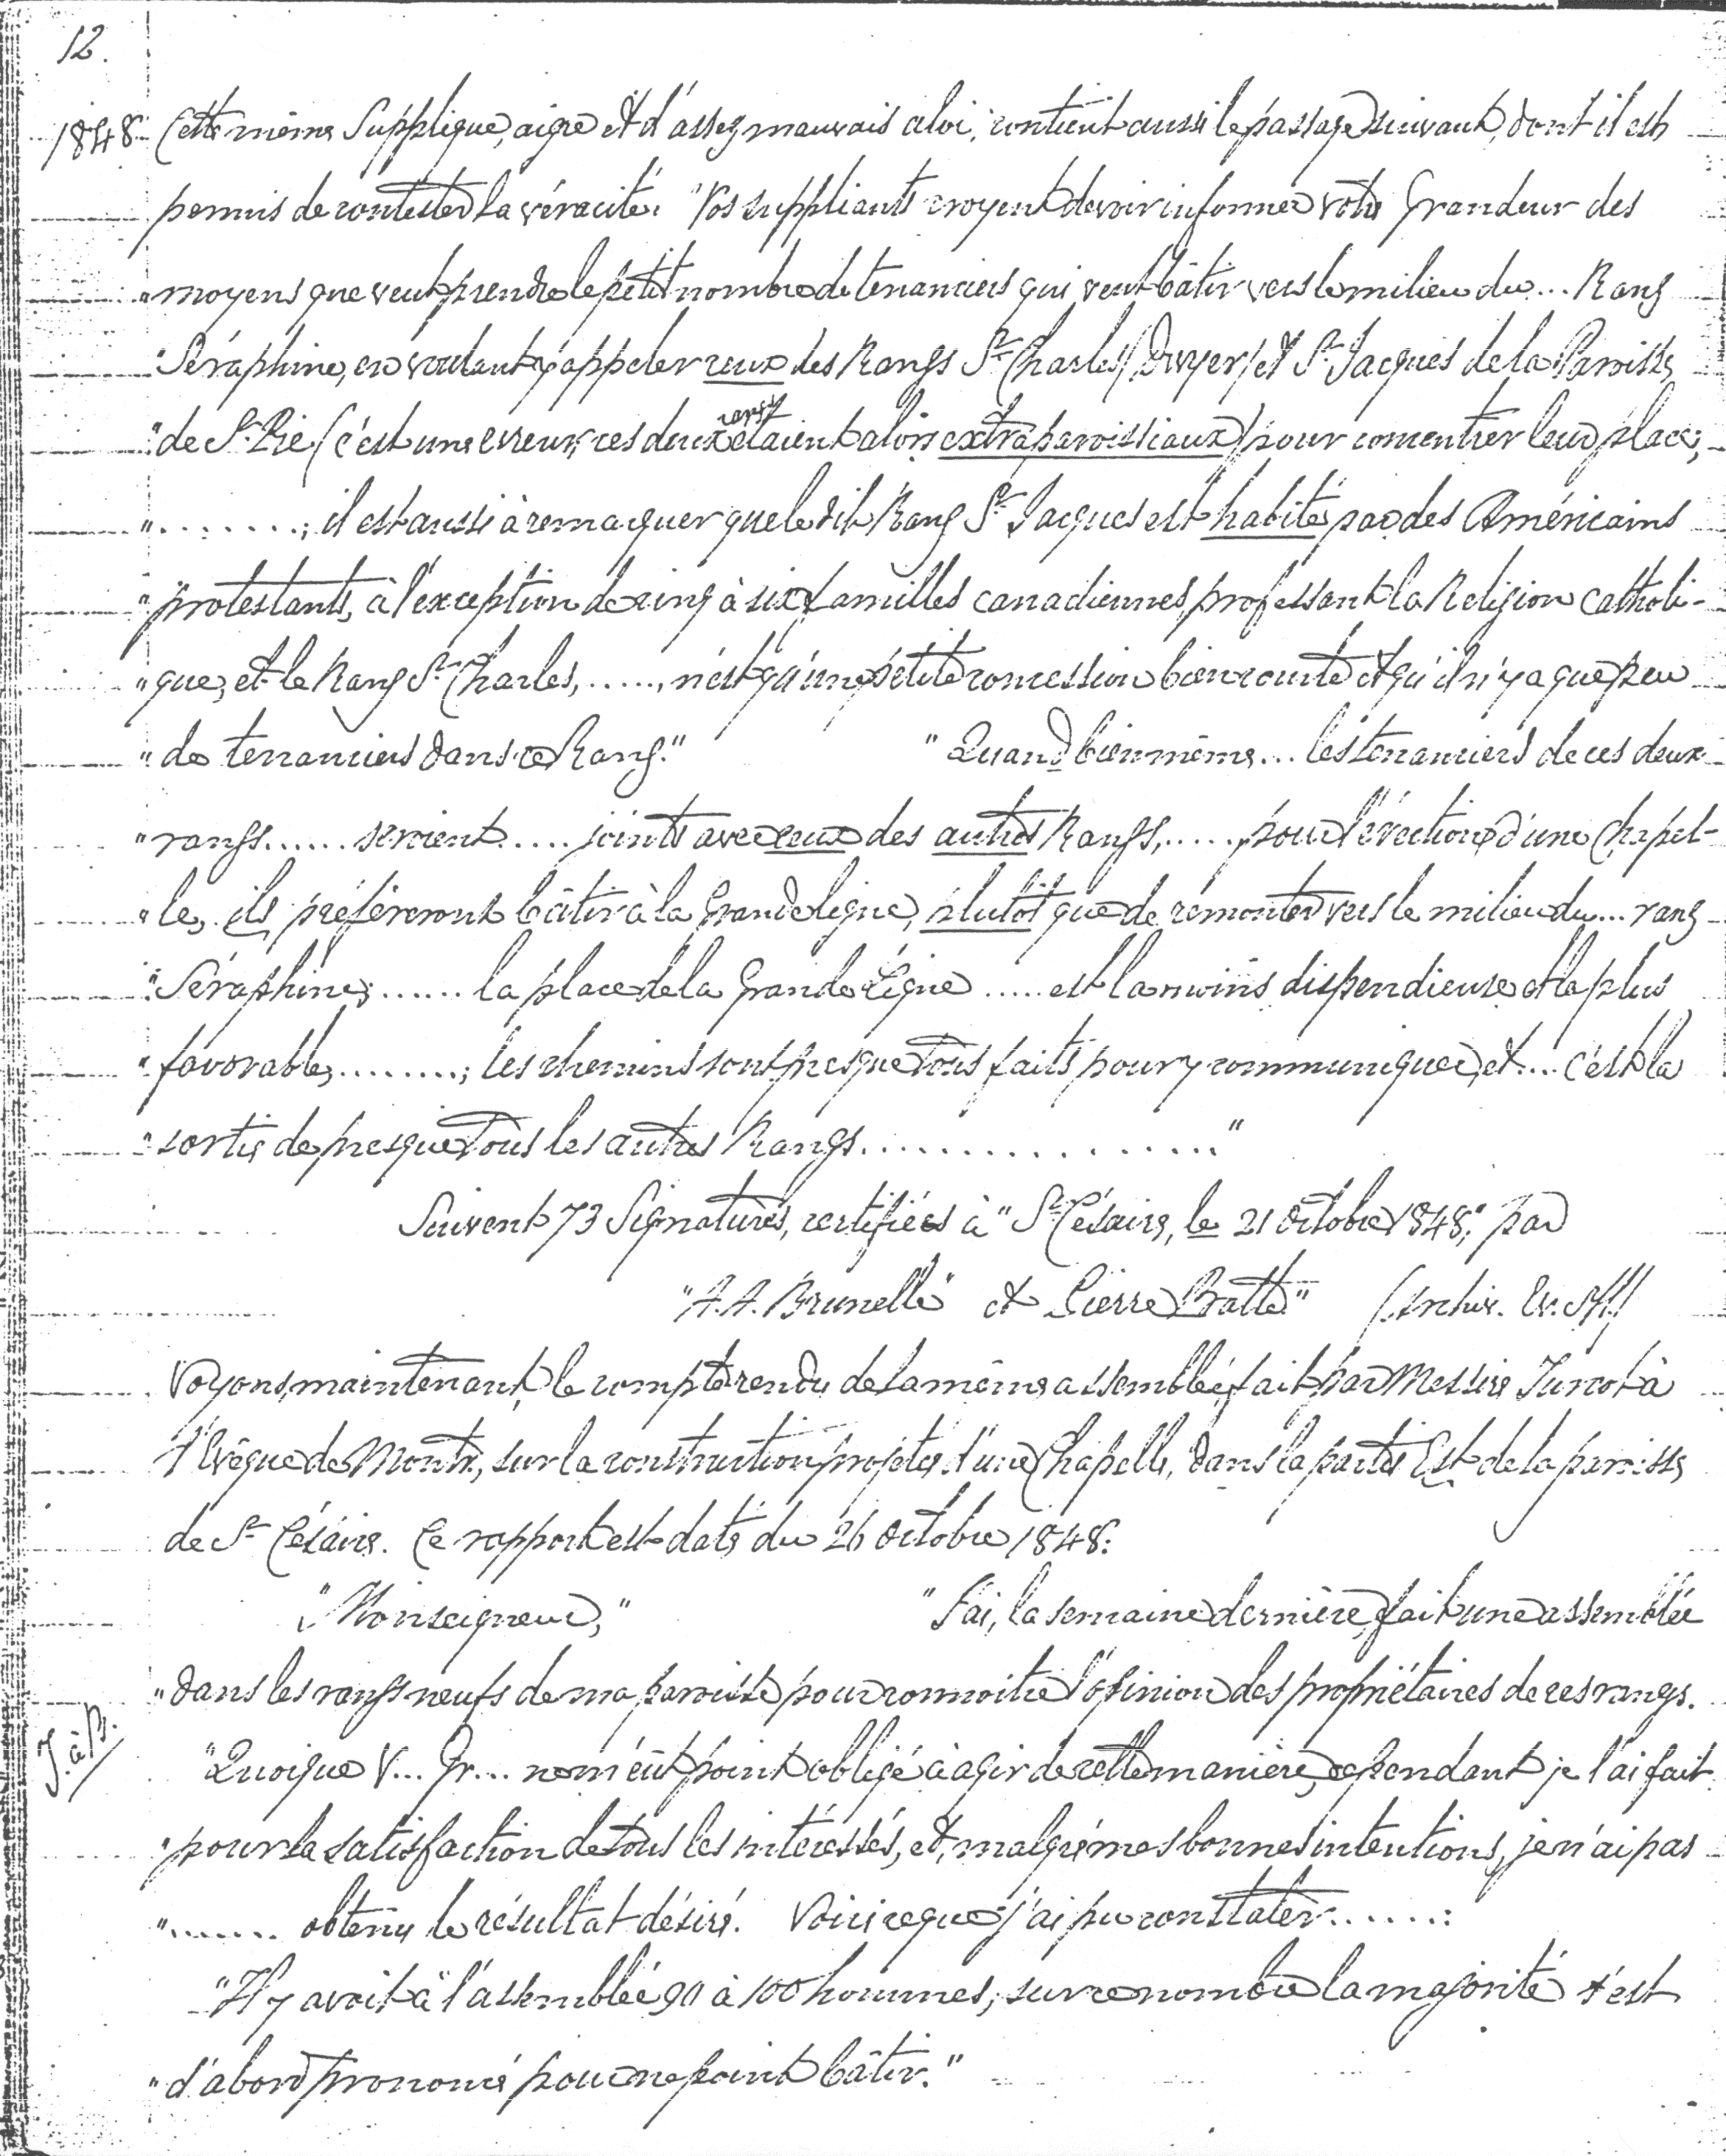 12.
1848. Cette même Supplique, aigre et d'assez mauvais aloi, contient aussi le passage suivant, dont il est
permis de contester la véracité: "Vos suppliants croyent devoir informer votre Grandeur des
"moyens que veut prendre le petit nombre de tenanciers qui veut bâtir vers le milieu du... Rang
"Séraphine, en voulant y appeler ceux des Rangs St Charles (Dwyer) et St Jacques de la Paroisse
"de St Pie (c'est une erreur, ces deux rangs étaient alors extraparoissiaux) pour concentrer leur place;
"........; il est aussi à remarquer que le dit Rang St Jacques est habité par des Américains
"protestants, à l'exception de cinq à six familles canadiennes, professant la Religion Catholi-
"que, et le Rang St Charles, ....., n'est qu'une petite concession bien courte et qu'il n'y a que peu
"de tenanciers dans ce Rang." "Quand bien même... les tenanciers de ces deux
"rangs...... seroient ..... joints avec ceux des autres Rangs, ....., pour l'érection d'une Chapel-
"le, ils préfèreront bâtir à la Grande ligne, plutôt que de remonter vers le milieu du... rang
"Séraphine; ...... la place de la Grande Ligne ..... est la moins dispendieuse et la plus
"favorable, ........; les chemins sont presque tous faits pour y communiquer, et ... c'est la
"sortie de presque tous les autres Rangs................."
Suivent 73 Signatures, certifiées à "St Césaire, le 21 octobre 1848," par
"A.A. Brunelle" et Pierre Bratte" (Archiv. Ev. M.)
Voyons, maintenant, le compte rendu de la même assemblée, fait par Messire Turcot à
l'Evêque de Montr., sur la construction projetée d'une Chapelle, dans la partie Est de la paroisse
de St Césaire. Ce rapport est daté du 26 Octobre 1848:
"Monseigneur," "J'ai, la semaine dernière, fait une assemblée
"dans les rangs neufs de ma paroisse pour connoitre l'opinion des propriétaires de ces rangs.
J. à B.
"Quoique V... Gr... ne m'eût point obligé à agir de cette manière, cependant je l'ai fait
"pour la satisfaction de tous les intéressés, et, malgré mes bonnes intentions, je n'ai pas
"....... obtenu le résultat désiré. Voici ce que j'ai pu constater......:
"Il y avoit à l'assemblée 90 à 100 hommes; sur ce nombre la majorité s'est
"d'abord prononcé pour ne point bâtir."